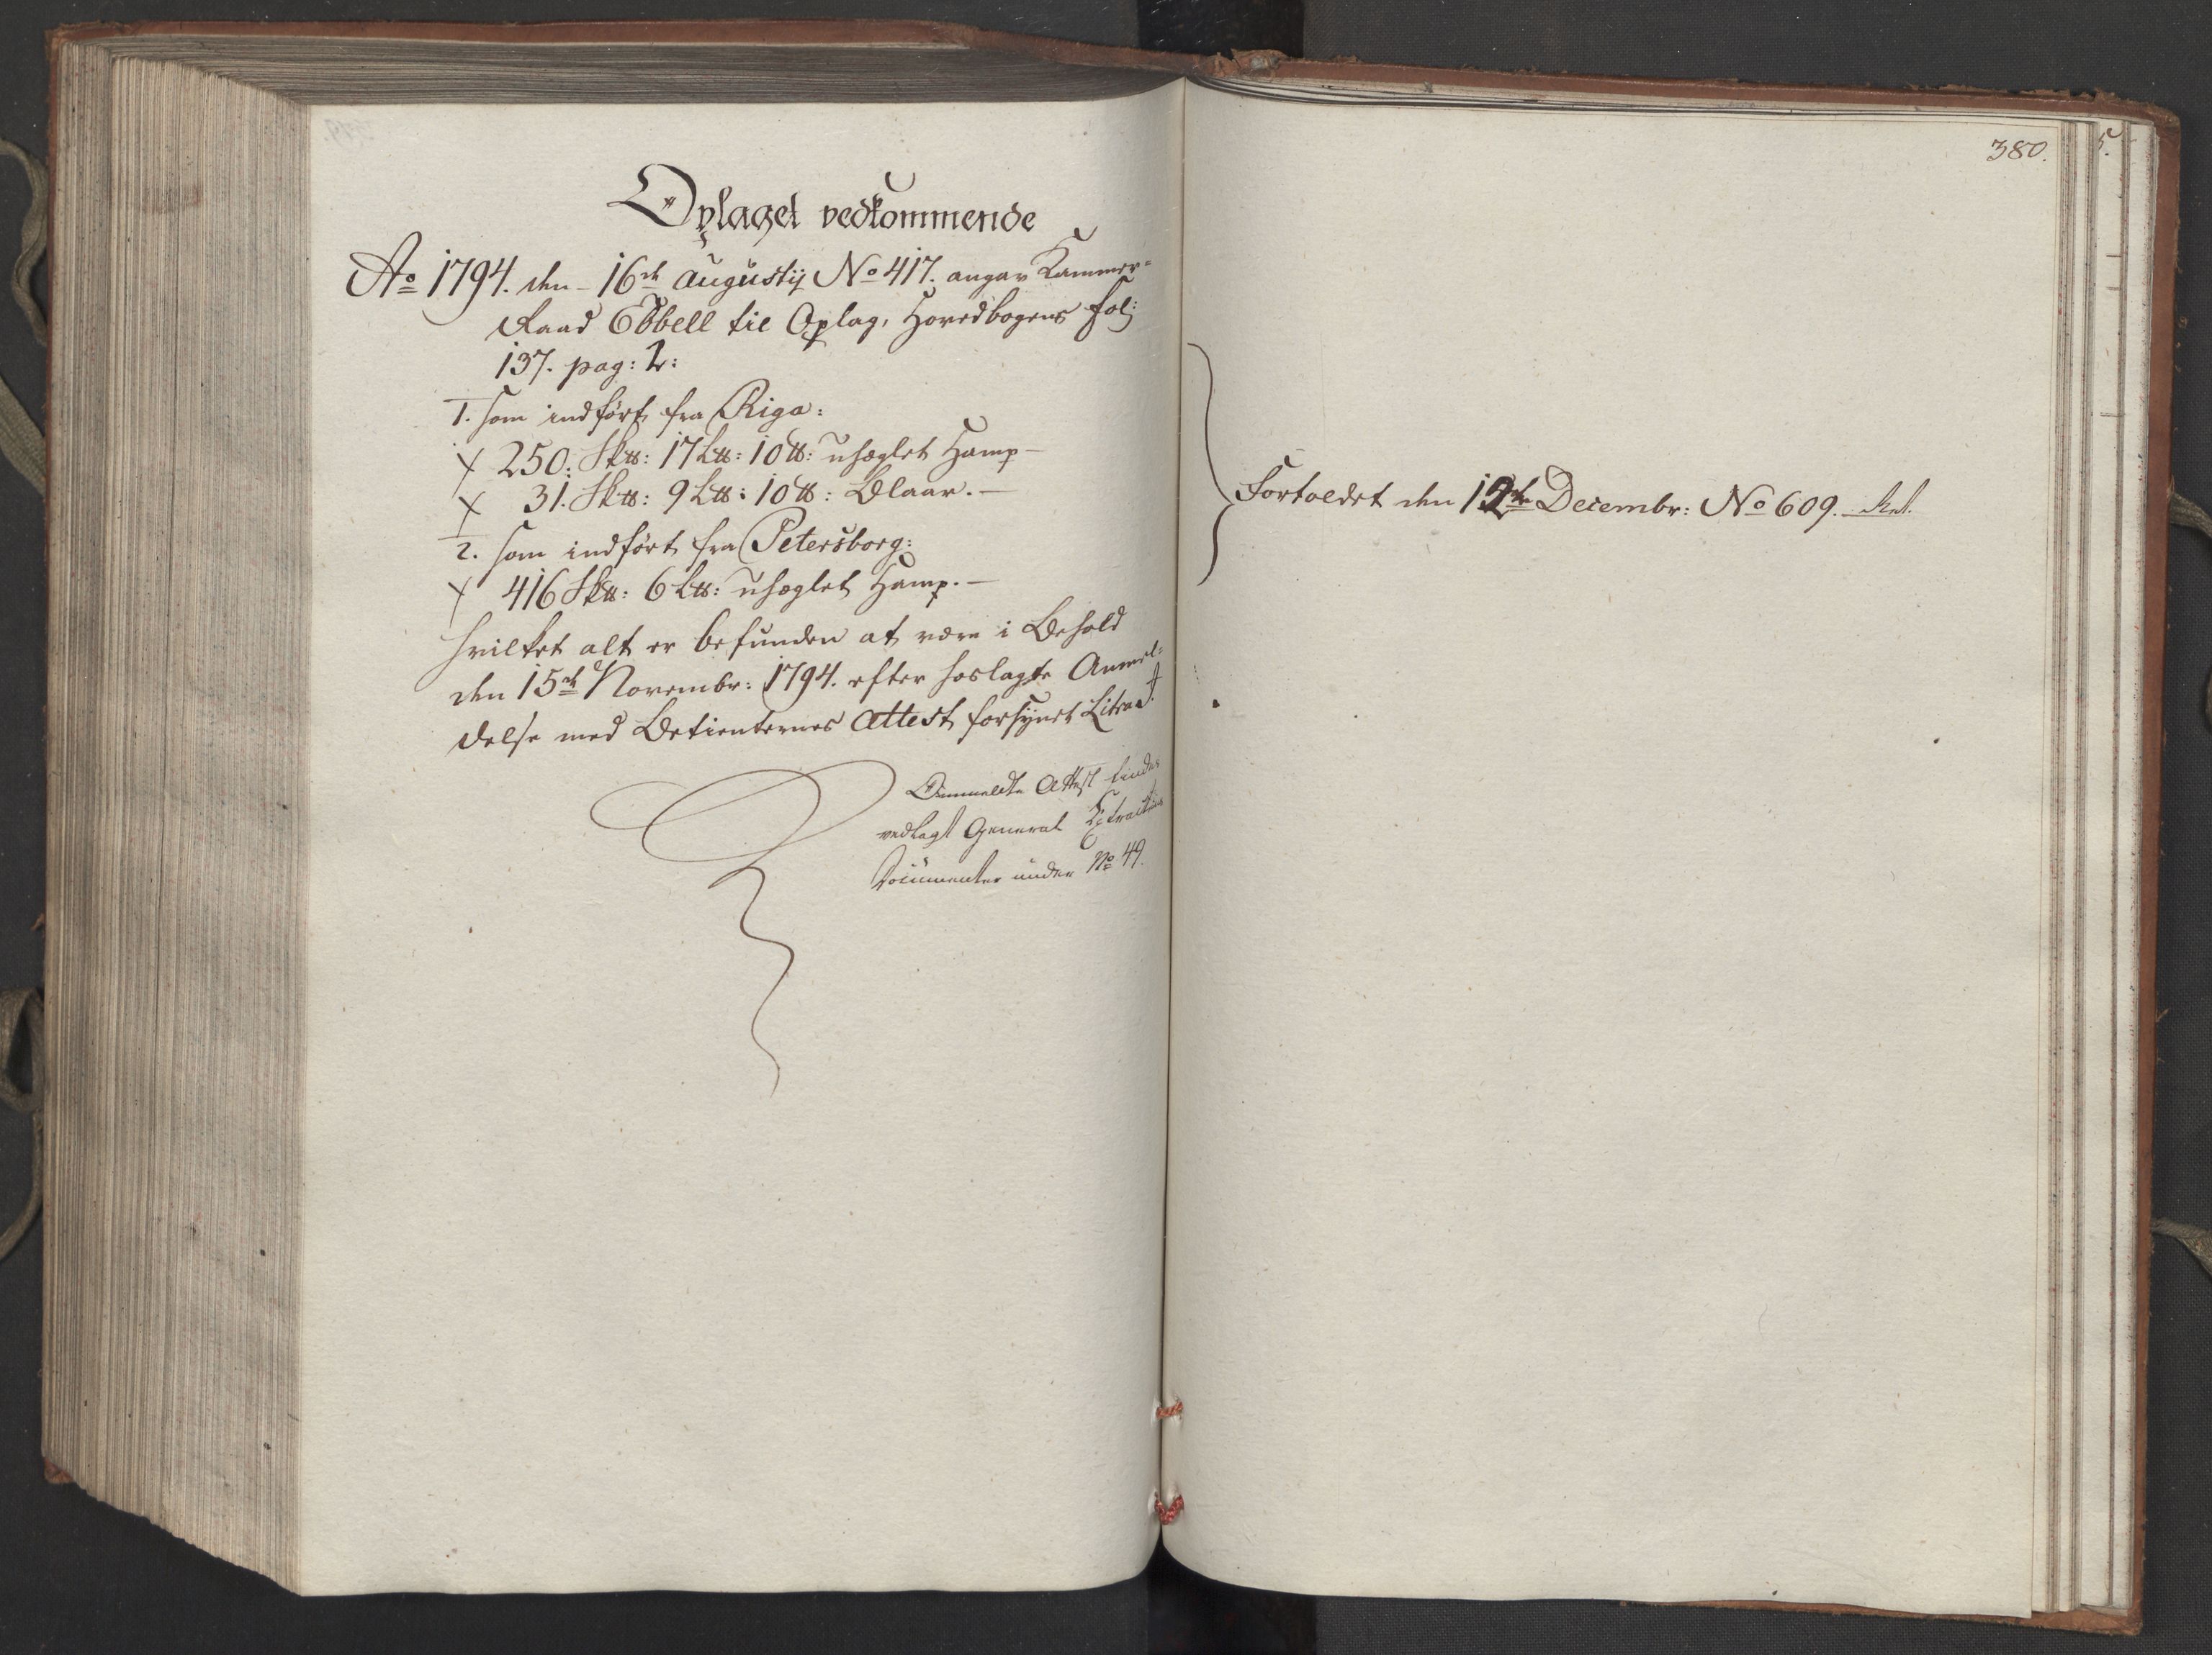 Oplaget vedkommende
Ao 1794. den 16de Augustij No 417. angav Kammer=
Raad Ebbell til Oplag, Hovedbogens fol:
137. pag: 2:
1. som indført fra Riga:
250. Sk℔: 17 L℔: 10 ℔: uheglet Hamp —
31. Sk℔: 9 L℔: 10 ℔: Blaar. —
2. som indført fra Petersborg:
416 Sk℔: 6 L℔: uheglet Hamp. —
hvilket alt er befunden at være i Behold
den 15de Novembr: 1794. efter hoslagte Anmel=
delse med Betienternes Attest forsynet Litra
Ommeldte Attest findes
vedlagt General Extractens
Documenter under No 49.
380.
5.
Fortoldet den 12te Decembr: No 609.